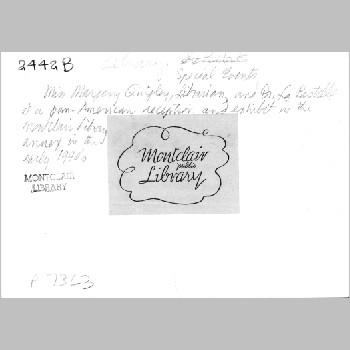 2442B
Library
Special Events
Miss Margery Quigley, Librarian, and Dr. La
at a pan-American reception and exhibit in the
Montclair Library
annex in the
early 1940s
MONTCLAIR
LIBRARY
Montclair
public
Library
P 7363